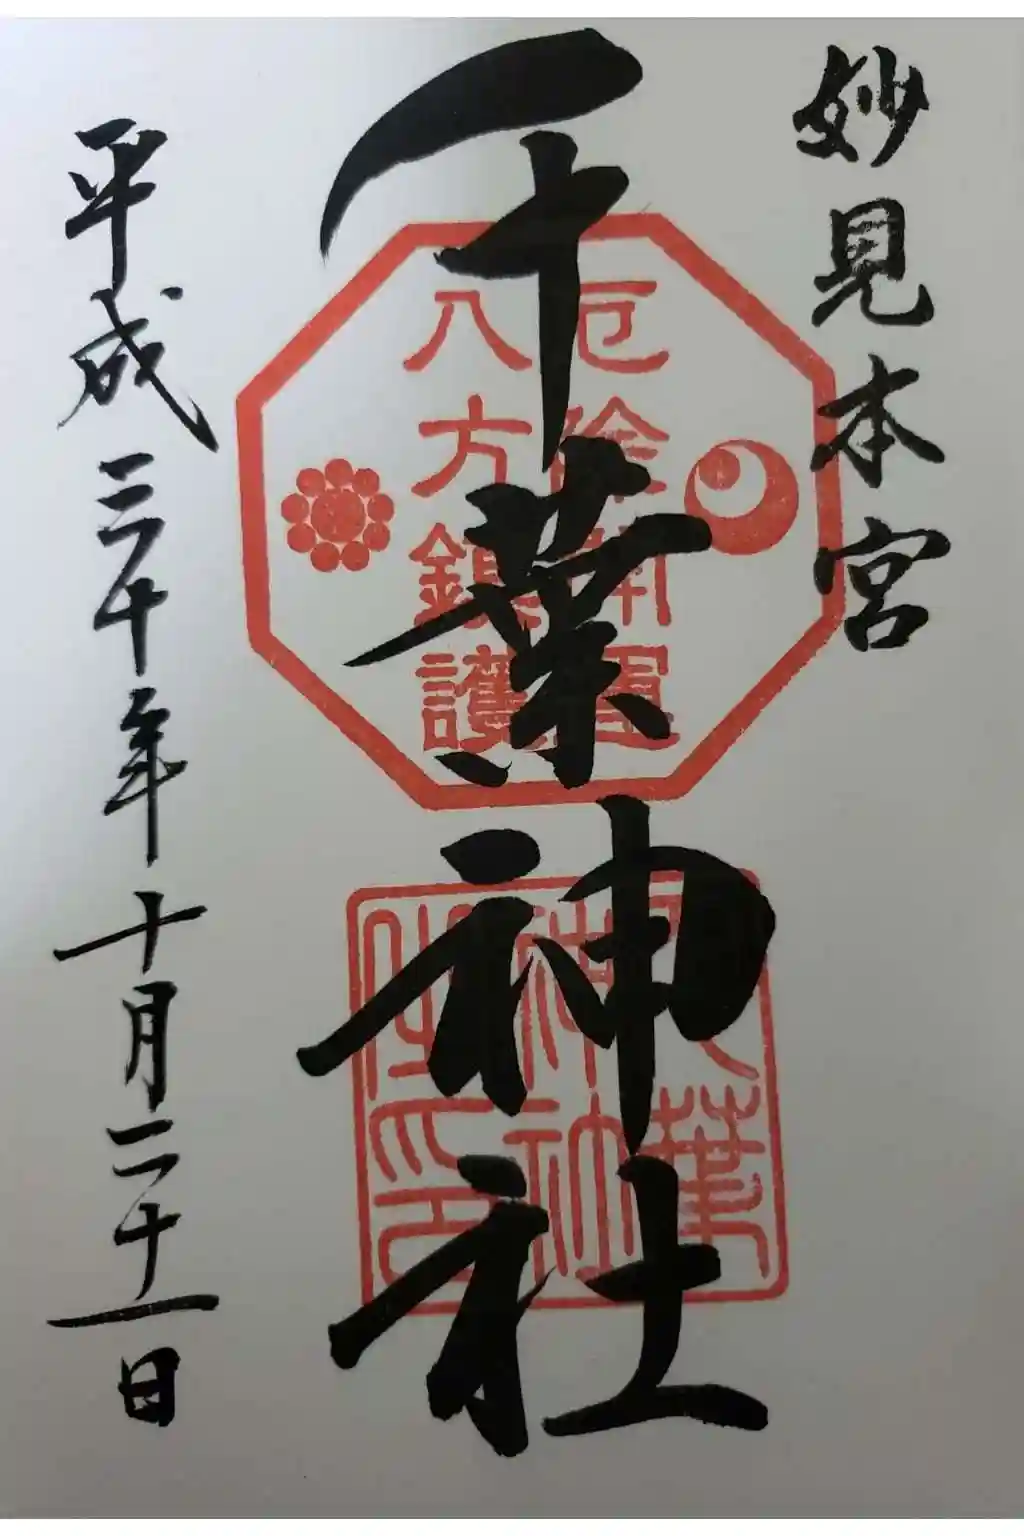 妙見本宮
千葉神社
平成三十年十月二十一日
厄除開運
八方鎮護
千葉
神社
之印